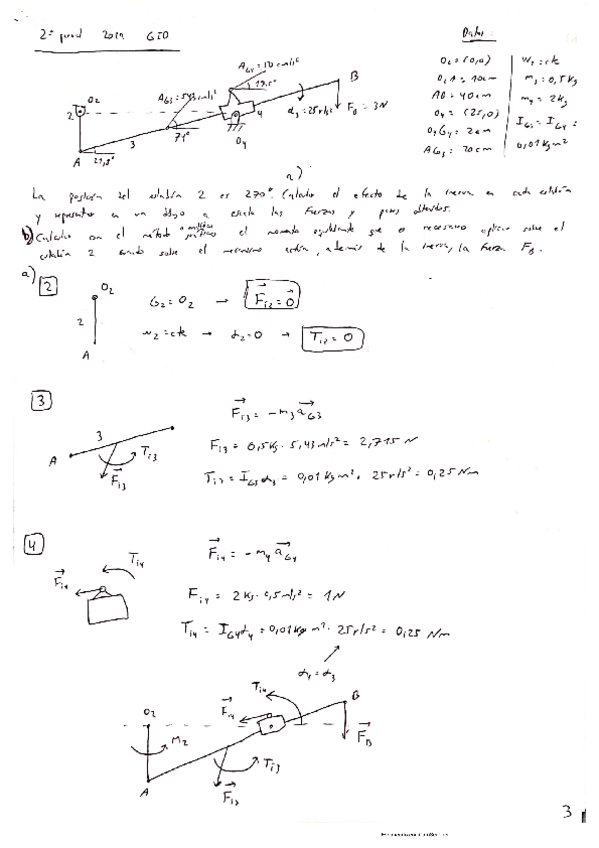 2º prod 2011 GIO
Datos:
O₂ = (0,0)
O₂A = 10cm
AB = 40cm
O₄ = (25,0)
O₄G₄ = 2cm
AG₃ = 20cm
w₂ = cte
m₃ = 0,5 Kg
m₄ = 2 Kg
I_G3 = I_G4 =
0,01 Kg m²
A_G3 = 543 cm/s²
A_G4 = 50 cm/s²
B
α₃ = 25 r/s²
F_B = 3N
O₂
2
3
4
O₄
A
21,8°
71°
a)
La posición del eslabón 2 es 270°. Calcular el efecto de la inercia en cada eslabón
y representar en un dibujo a escala las fuerzas y pares obtenidos.
b) Calcular con el método potencias el momento equilibrante que es necesario aplicar sobre el
eslabón 2 cuando sobre el mecanismo actúa, además de la inercia, la fuerza F_B.
a)
2
O₂
2
A
G₂ = O₂ → F_i2 = 0
w₂ = cte → α₂ = 0 → T_i2 = 0
3
3
A
T_i3
F_i3
F_i3 = -m₃ a_G3
F_i3 = 0,5 Kg · 5,43 m/s² = 2,715 N
T_i3 = I_G3 α₃ = 0,01 Kg m² · 25 r/s² = 0,25 Nm
4
T_i4
F_i4
F_i4 = -m₄ a_G4
F_i4 = 2 Kg · 0,5 m/s² = 1 N
T_i4 = I_G4 α₄ = 0,01 Kg m² · 25 r/s² = 0,25 Nm
α₄ = α₃
O₂
M₂
A
F_i4
T_i4
B
F_B
T_i3
F_i3
3